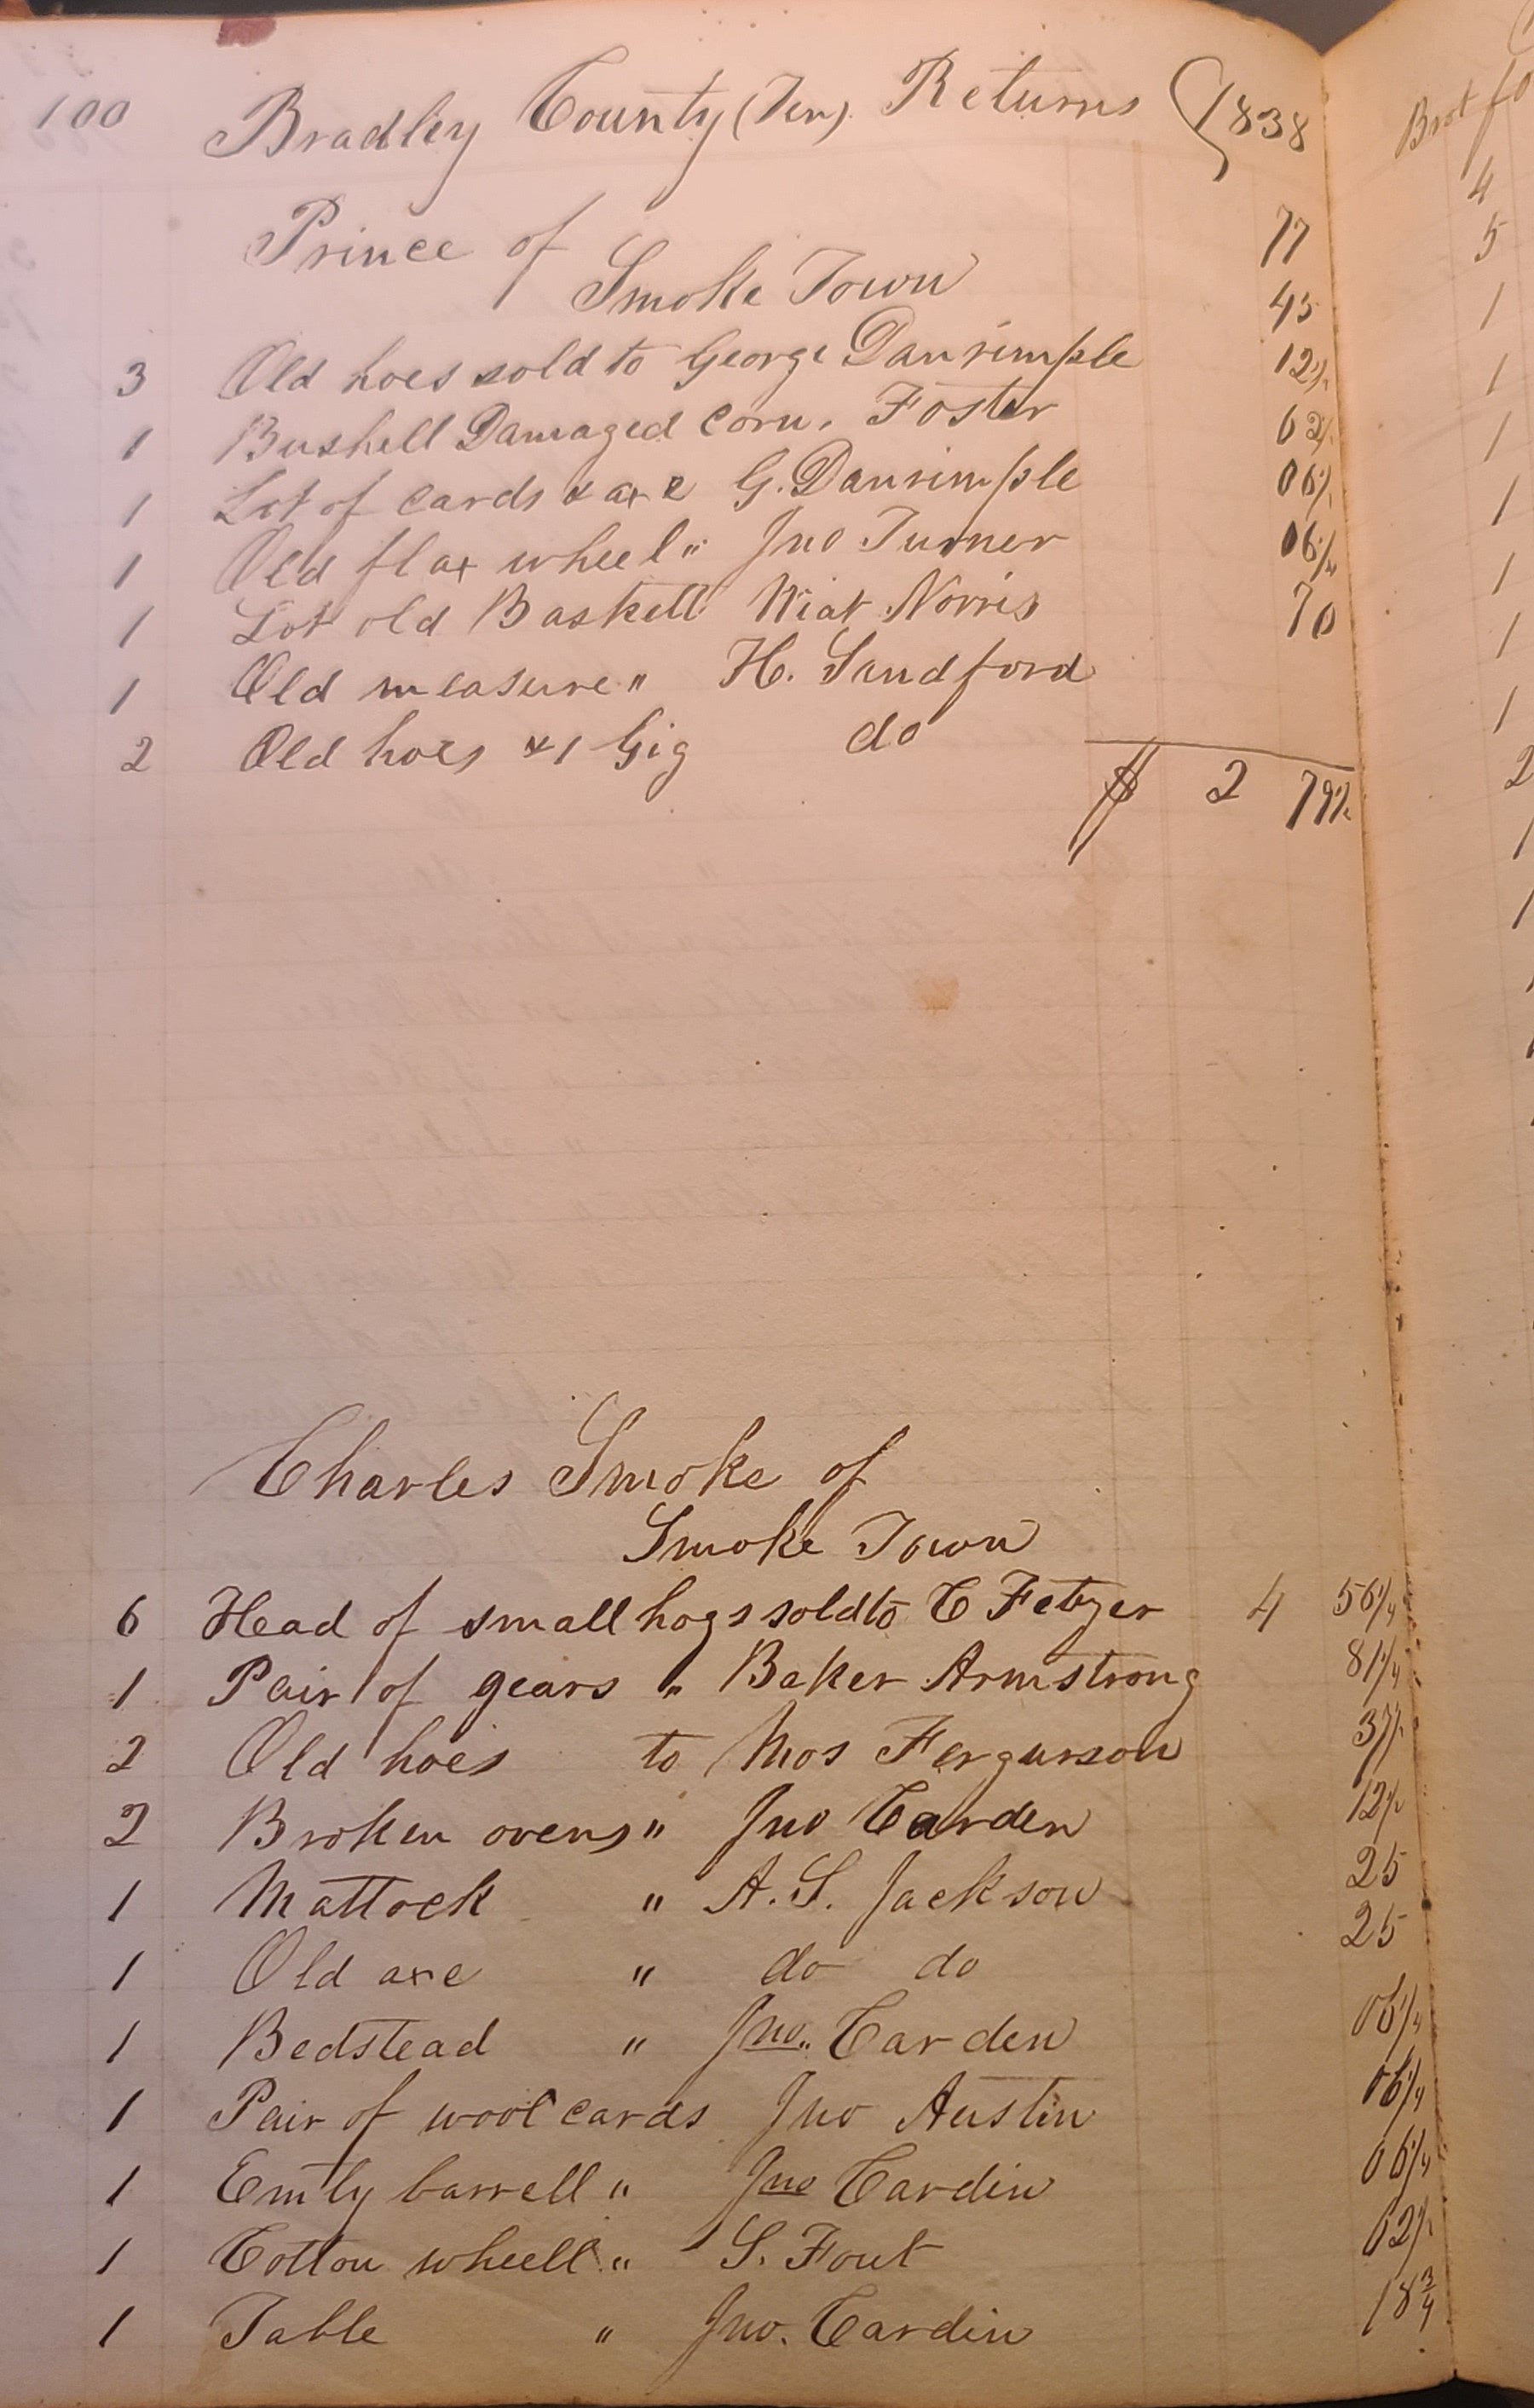 100 Bradley County (Ten) Returns 1838
Prince of
Smoke Town
3 Old hoes sold to George Danrimple 77
1 Bushell Damaged corn, Foster 45
1 Lot of cards & axe G. Danrimple 12 1/2
1 Old flax wheel " Jno Turner 62 1/2
1 Lot old Baskett Wiat Norris 06 1/4
1 Old measure " H. Sandford 06 1/4
2 Old hoes & 1 Gig do 70
$ 2 79 1/2
Charles Smoke of
Smoke Town
6 Head of small hogs sold to C Fetzer 4 56 1/4
1 Pair of gears " Baker Armstrong 81 1/4
2 Old hoes to Mos Fergurson 37 1/2
2 Broken ovens " Jno Carden 12 1/2
1 Mattock " A. S. Jackson 25
1 Old axe " do do 25
1 Bedstead " Jno.. Carden 06 1/4
1 Pair of wool cards Jno Austin 06 1/4
1 Emty barrell " Jno Cardin 06 1/4
1 Cotton wheell " S. Fout 62 1/2
1 Table " Jno. Cardin 18 3/4
Brot fo
4
5
1
1
1
1
1
1
1
2
1
1